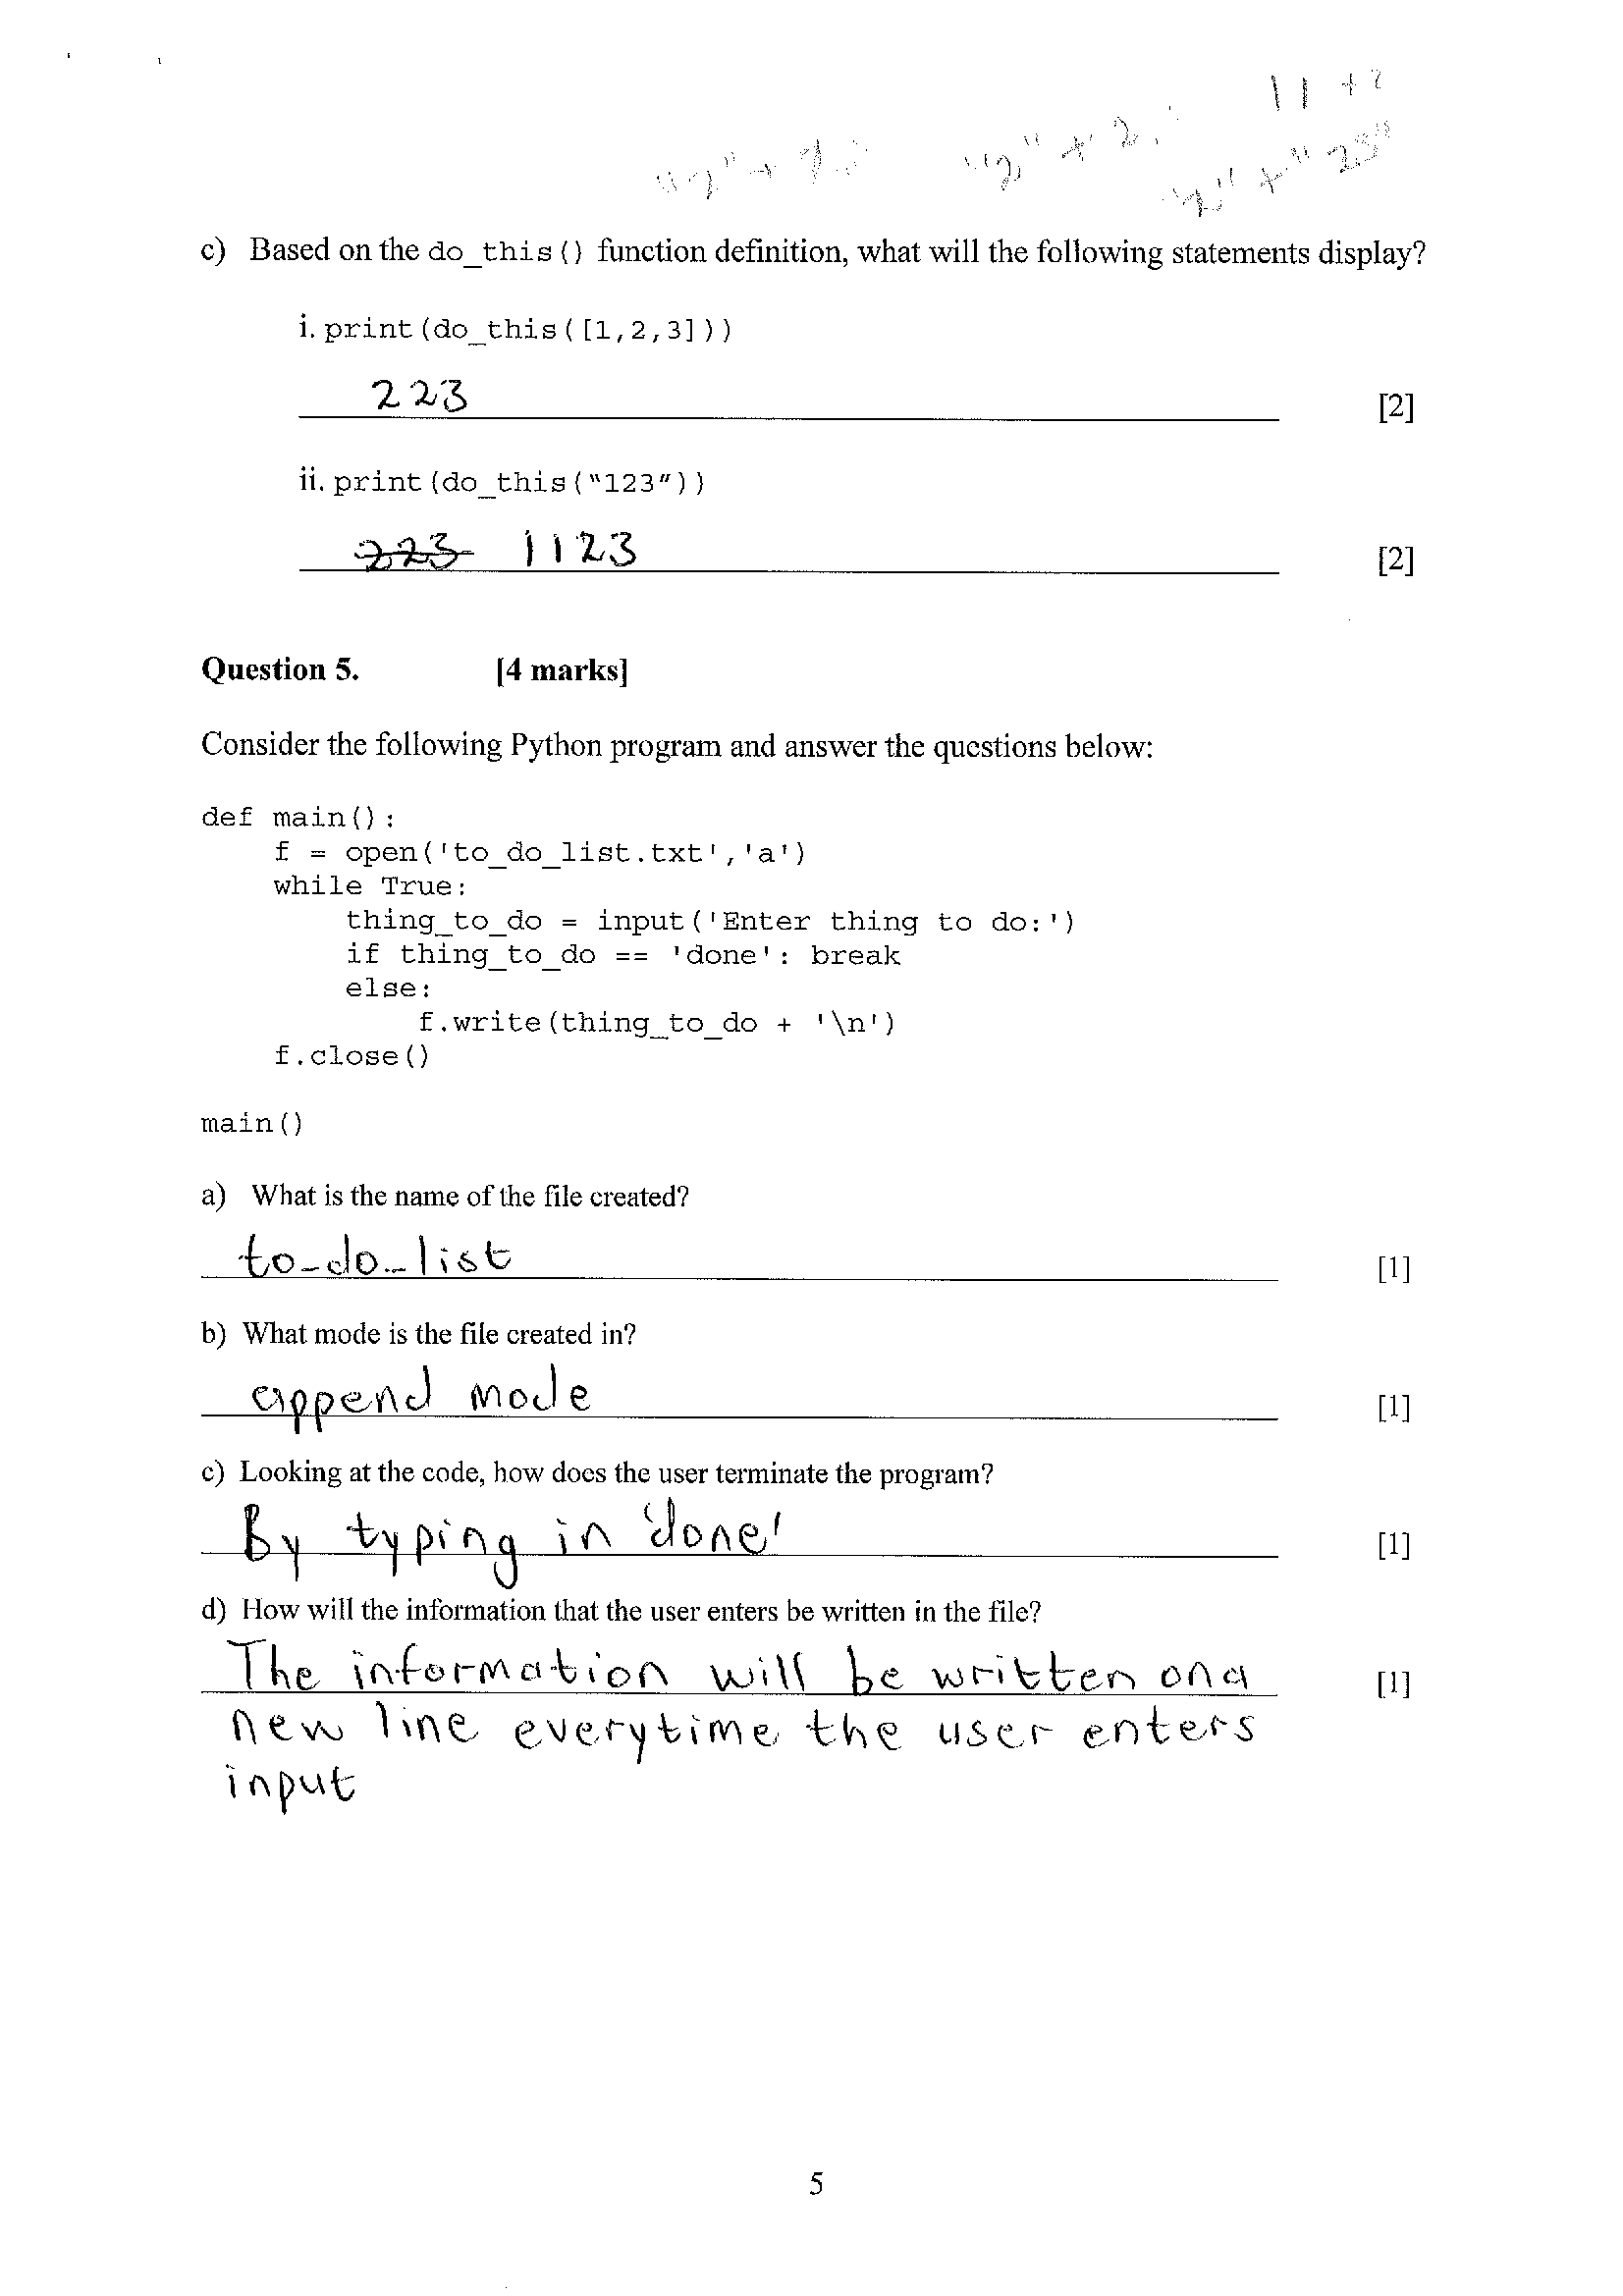 11 + 2
"2" + 2 "2" + "23"
c) Based on the do_this() function definition, what will the following statements display?
i. print(do_this([1,2,3]))
223 [2]
ii. print(do_this(“123”))
223 1123 [2]
Question 5. [4 marks]
Consider the following Python program and answer the questions below:
def main():
f = open('to_do_list.txt','a')
while True:
thing_to_do = input('Enter thing to do:')
if thing_to_do == 'done': break
else:
f.write(thing_to_do + '\n')
f.close()
main()
a) What is the name of the file created?
to_do_list [1]
b) What mode is the file created in?
append mode [1]
c) Looking at the code, how does the user terminate the program?
By typing in 'done' [1]
d) How will the information that the user enters be written in the file?
The information will be written on a [1]
new line everytime the user enters
input
5